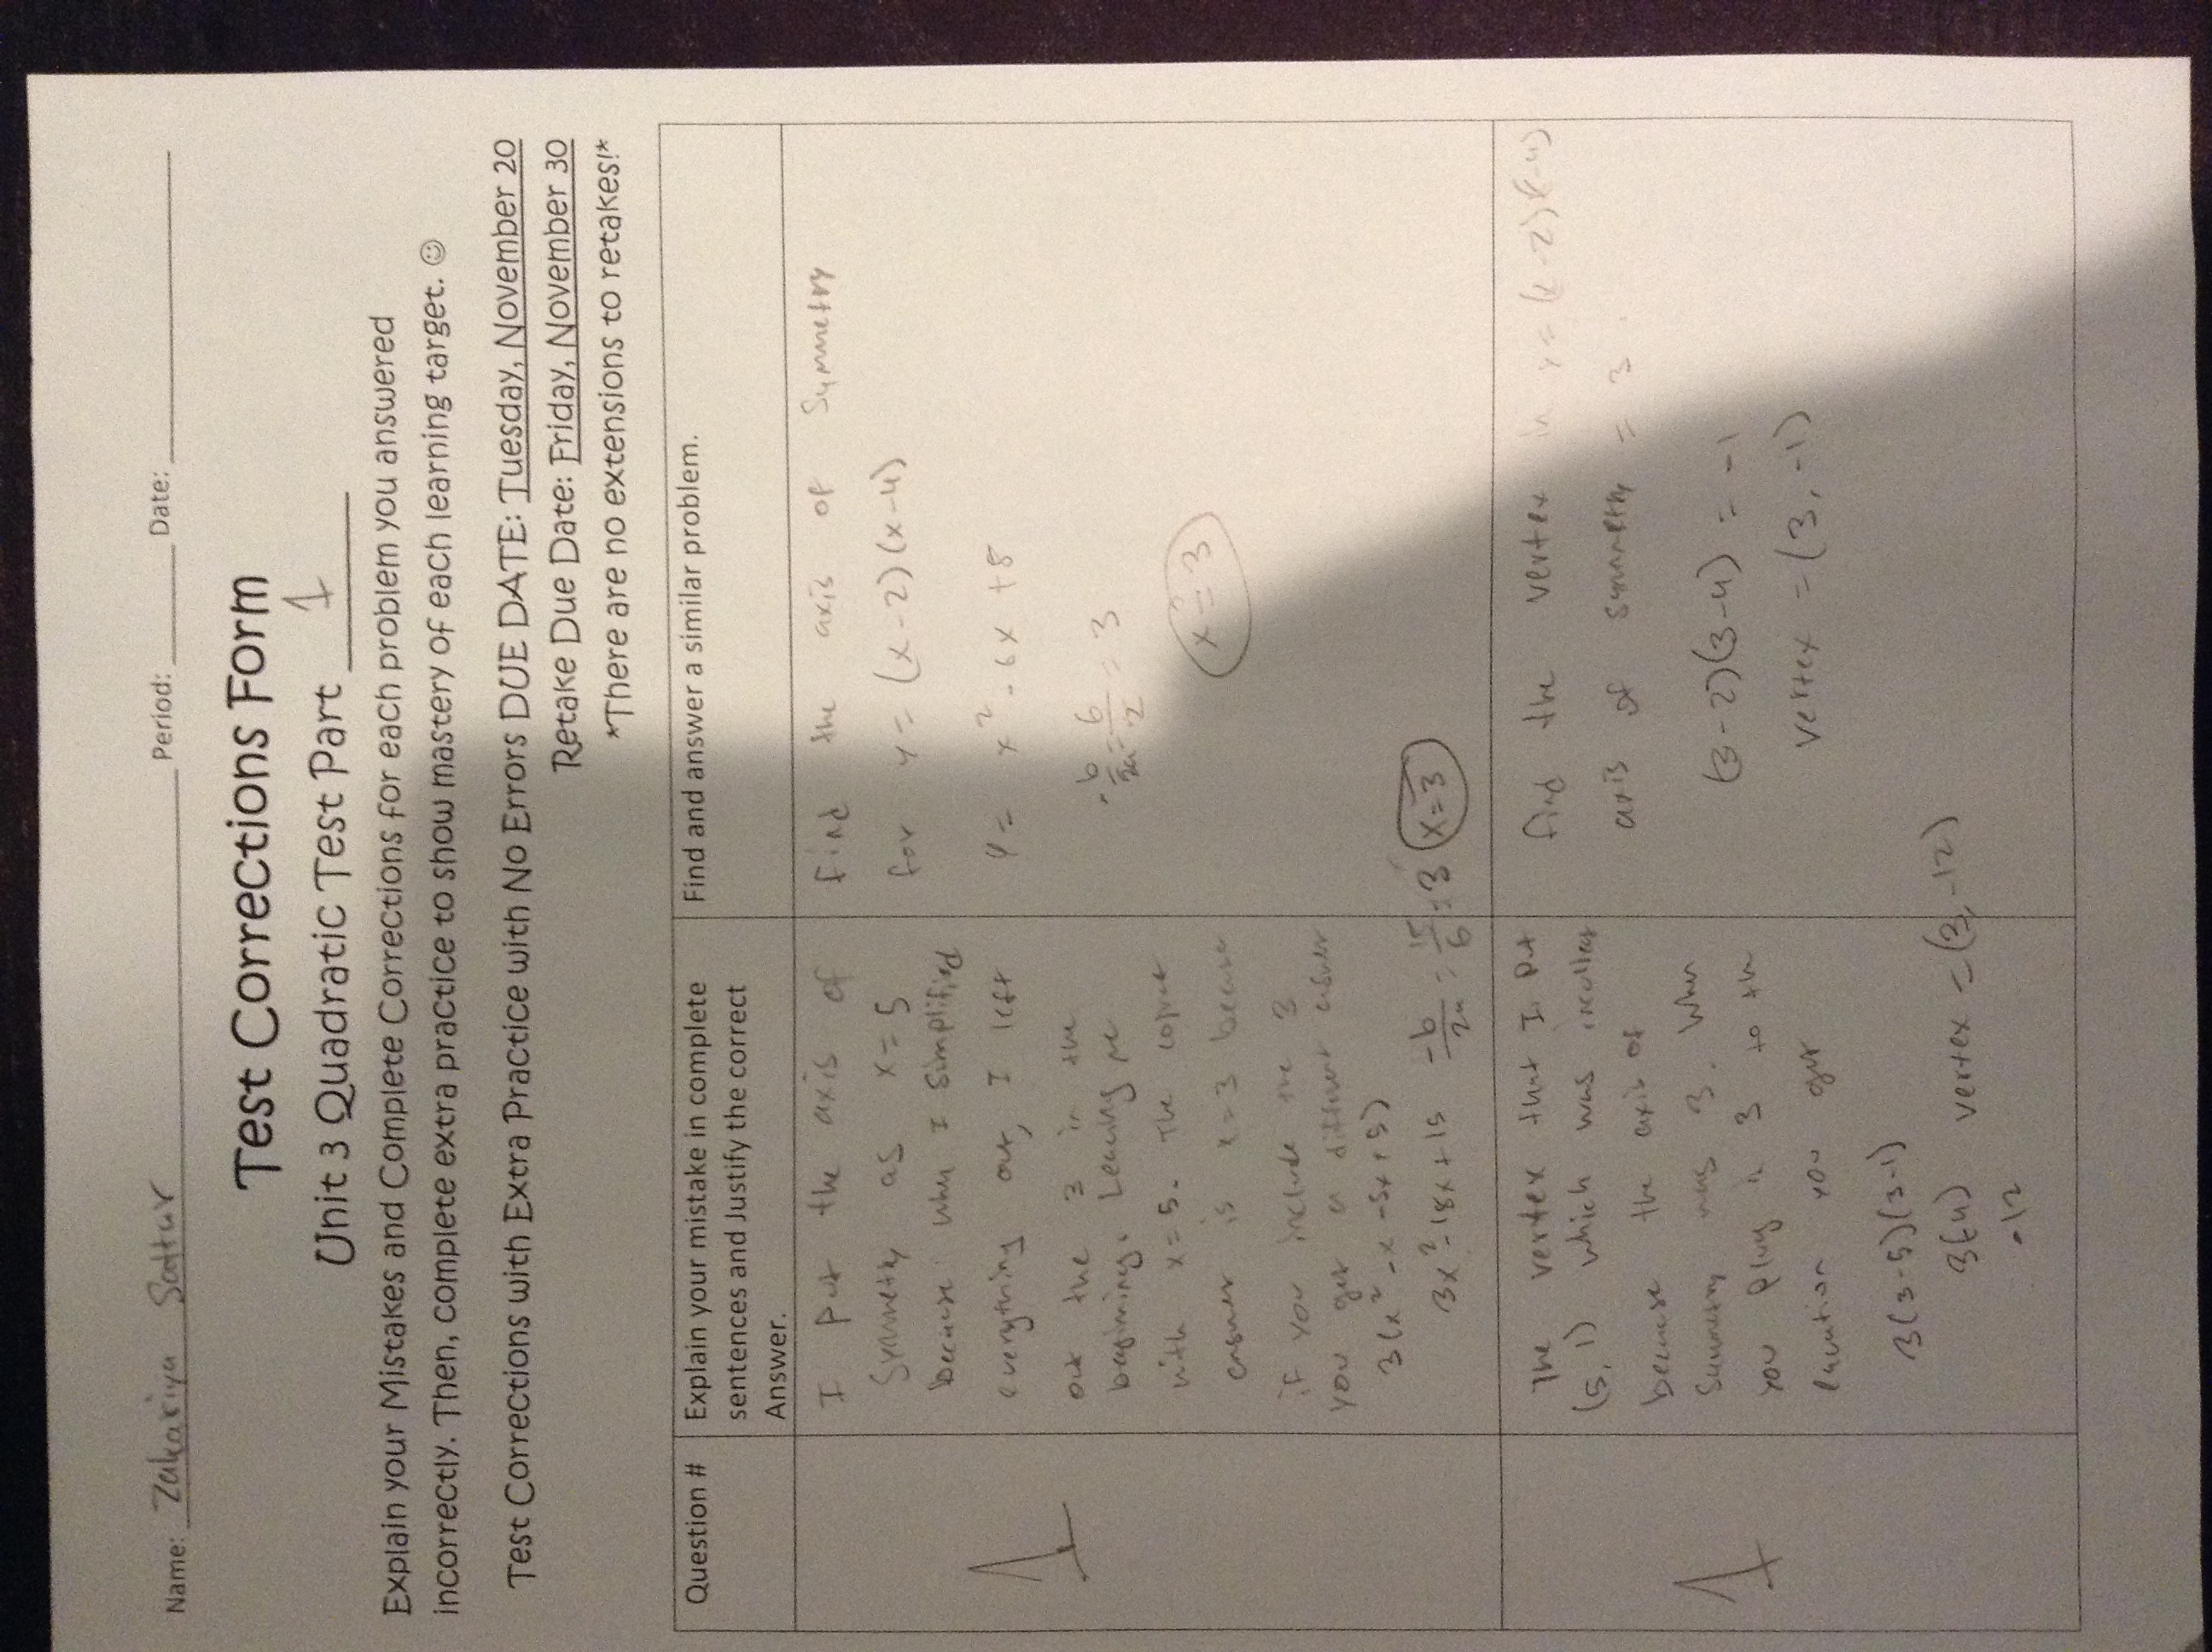 Name: Zakariya Sattur Period: Date:
Test Corrections Form
Unit 3 Quadratic Test Part 1
Explain your Mistakes and Complete Corrections for each problem you answered
incorrectly. Then, complete extra practice to show mastery of each learning target. ☺
Test Corrections with Extra Practice with No Errors DUE DATE: Tuesday, November 20
Retake Due Date: Friday, November 30
*There are no extensions to retakes!*
Question #
Explain your mistake in complete
sentences and Justify the correct
Answer.
Find and answer a similar problem.
1
I put the axis of
Symmetry as x = 5
because when I simplified
everything out, I left
out the 3 in the
begining. Leaving me
with x = 5. The
answer is x = 3 because
if you include the 3
you get a different answer
3(x² - x - 5x + 5)
3x² - 18x + 15 -b/2a = /6 = 3 x = 3
Find the axis of Symmetry
for y = (x-2)(x-4)
y = x² - 6x + 8
-b/2a = 6/2 = 3
x = 3
1
The vertex that I put
(5, 1) which was
because the axis of
Symmetry was 3. When
you plug in 3 to the
you get
3(3-5)(3-1)
3(-4) vertex = (3, -12)
-12
find the vertex in y = (x-2)(x-4)
axis of symmetry = 3
(3-2)(3-4) = -1
vertex = (3, -1)